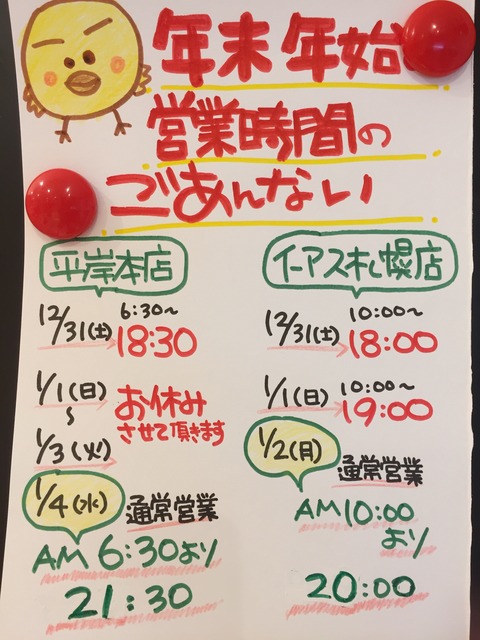 年末年始
営業時間の
ごあんない
平岸本店
12/31(土) 6:30~
18:30
1/1(日)
~
1/3(火)
お休み
させて頂きます
1/4(水) 通常営業
AM 6:30より
21:30
イーアス札幌店
12/31(土) 10:00~
18:00
1/1(日) 10:00~
19:00
1/2(月) 通常営業
AM10:00
より
20:00